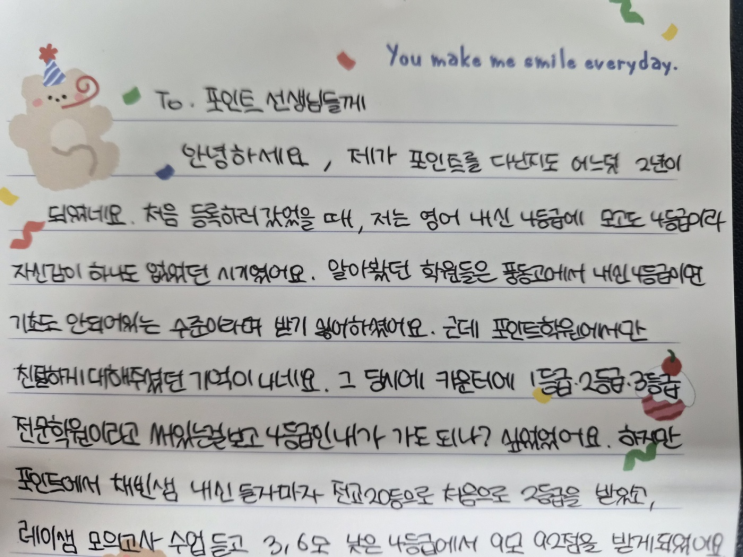 You make me smile everyday.
To. 포인트 선생님들께
안녕하세요, 제가 포인트를 다닌지도 어느덧 2년이
되었네요. 처음 등록하러 갔었을 때, 저는 영어 내신 4등급에 모고도 4등급이라
자신감이 하나도 없었던 시기였어요. 알아봤던 학원들은 풍동고에서 내신4등급이면
기초도 안되어있는 수준이라며 받기 싫어하셨어요. 근데 포인트학원에서만
친절하게 대해주셨던 기억이 나네요. 그 당시에 카운터에 1등급·2등급·3등급
전문학원이라고 써있는걸보고 4등급인 내가 가도 되나? 싶었었어요. 하지만
포인트에서 채빈쌤 내신 듣자마자 전교20등으로 처음으로 2등급을 받았고,
레이쌤 모의고사 수업 듣고 3,6모 낮은 4등급에서 9모 92점을 받게되었어요